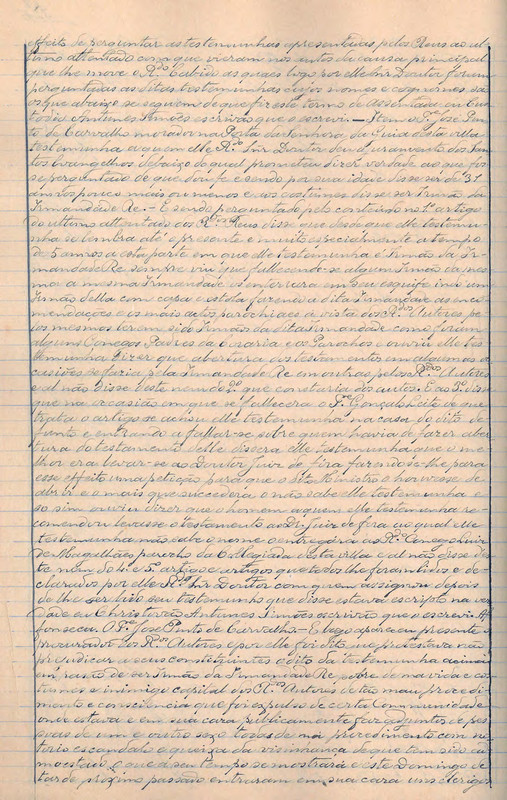 effeito de perguntar as testemunhas apresentadas pelos Reus ao ul-
timo attentado com que vieram nos autos da causa principal
que lhe move o R.do Cabido as quaes logo por elle Snr. Doutor foram
perguntadas as ditas testemunhas cujos nomes e cognomes são
os que abaixo se seguem de que fiz este termo de Assentada eu Chris-
tovão Antunes Simões escrivão que o escrevi. — Item o P.e José Pin-
to de Carvalho morador na Porta da Senhora da Guia desta villa
testemunha a quem elle R.do Snr. Doutor deu o juramento dos San-
tos Evangelhos debaixo do qual prometteu dizer verdade ao que fos-
se perguntado de que dou fé e sendo por sua idade disse ser de 31
annos pouco mais ou menos e aos costumes disse ser Irmão da
Irmandade Re. — E sendo perguntado pelo conteúdo no 1.º artigo
do ultimo attentado dos R.dos Reus disse que desde que elle testemu-
nha se lembra até o presente e muito especialmente a tempo
de 5 annos a esta parte em que elle testemunha é Irmão da Ir-
mandade Re sempre viu que fallecendo-se algum Irmão da mes-
ma a mesma Irmandade o enterrava em seu esquife indo um
Irmão della com capa e estola fazendo a dita Irmandade as enco-
mendações e os mais actos parochiaes á vista dos R.dos Autores pe-
los mesmos terem sido Irmãos da dita Irmandade como foram
alguns Conegos, Padres da Coraria e os Parochos e ouviu elle tes-
temunha dizer que abertura dos testamentos em algumas oc-
casiões se fazia pela Irmandade Re em outras pelos R.dos Autores
e al não disse deste nem do 2.º que constaria dos autos. E ao 3.º disse
que na occasião em que se fallecera o P.e Gonçalo Leite de que
trata o artigo se achou elle testemunha na casa do dito de-
funto e entrando a fallar-se sobre quem havia de fazer aber-
tura do testamento delle dissera elle testemunha que o me-
lhor era levar-se ao Doutor Juiz de fóra fazendo-se-lhe para
esse effeito uma petição para que o dito Ministro o houvesse de
abrir e o mais que succedera o não sabe elle testemunha e
só sim ouviu dizer que o homem a quem elle testemunha re-
commendou levasse o testamento ao Dr. Juiz de fóra ao qual elle
testemunha não sabe o nome o entregára ao R.do Conego Luiz
de Magalhães presente da Collegiada desta villa e al não disse des-
te nem do 4.º e 5.º artigo e artigos que todos lhe foram lidos e de-
clarados por elle R.do Snr. Doutor com quem assignou depois
de lhe ser lido seu testemunho que disse estava escripto na ver-
dade eu Christovão Antunes Simões escrivão que o escrevi. Af-
fonseca. O P.e José Pinto de Carvalho — E logo appareceu presente o
procurador dos R.dos Autores e por elle foi dito que protestava não
prejudicar a seus constituintes o dito da testemunha acima
em razão de ser Irmão da Irmandade Re pobre de má vida e cos-
tumes e inimigo capital dos R.dos Autores de tão mau procedi-
mento e consciencia que foi expulso de certa Communidade
onde estava e em sua casa publicamente faz adjuntos de pes-
soas de um e outro sexo todas de má procedimento com no-
torio escandalo e queixa da visinhança de que tem sido ad-
moestado o que a seu tempo se mostrará e este Domingo de
tarde proximo passado entraram em sua casa uns clerigos